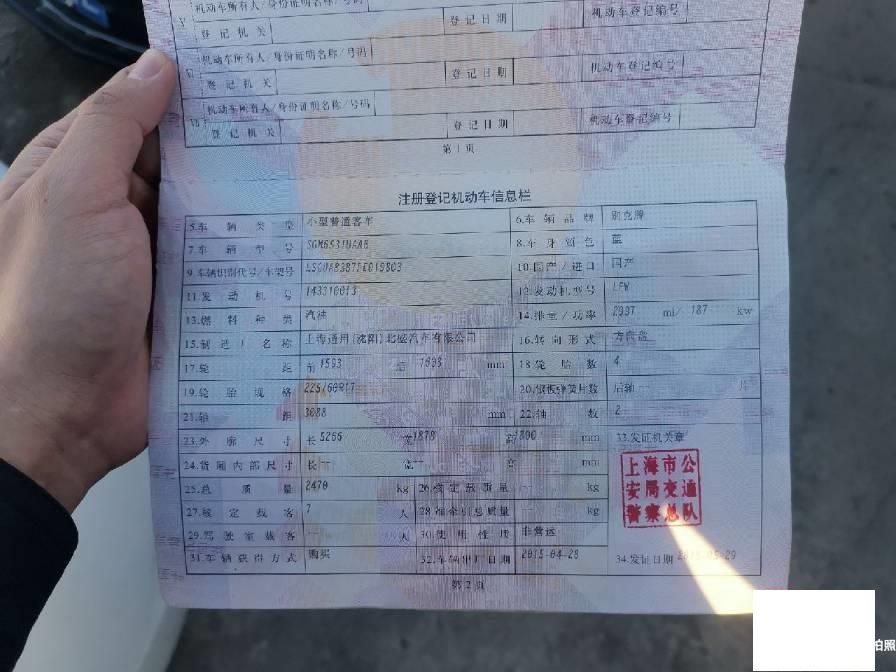 机动车所有人/身份证明名称/号码
登记机关 登记日期 机动车登记编号
机动车所有人/身份证明名称/号码
登记机关 登记日期 机动车登记编号
机动车所有人/身份证明名称/号码
登记机关 登记日期 机动车登记编号
第1页
注册登记机动车信息栏
5.车辆类型 小型普通客车 6.车辆品牌 别克牌
7.车辆型号 SGM6531UAAB 8.车身颜色 蓝
9.车辆识别代号/车架号 10.国产/进口 国产
11.发动机号 143310013 12.发动机型号 LFW
13.燃料种类 汽油 14.排量/功率 2997 ml/ 187 kw
15.制造厂名称 上海通用(沈阳)北盛汽车有限公司 16.转向形式 方向盘
17.轮距 前 1593 后 1603 mm 18.轮胎数 4
19.轮胎规格 225/60R17 20.钢板弹簧片数 后轴 -- 片
21.轴距 3088 mm 22.轴数 2
23.外廓尺寸 长 5266 宽 1878 高 1800 mm 33.发证机关章
24.货厢内部尺寸 长 -- 宽 -- 高 mm
上海市公
安局交通
警察总队
25.总质量 2470 kg 26.核定载质量 -- kg
27.核定载客 7 人 28.准牵引总质量 -- kg
29.驾驶室载客 -- 人 30.使用性质 非营运
31.车辆获得方式 购买 32.车辆出厂日期 2015-04-28 34.发证日期
第2页
拍照